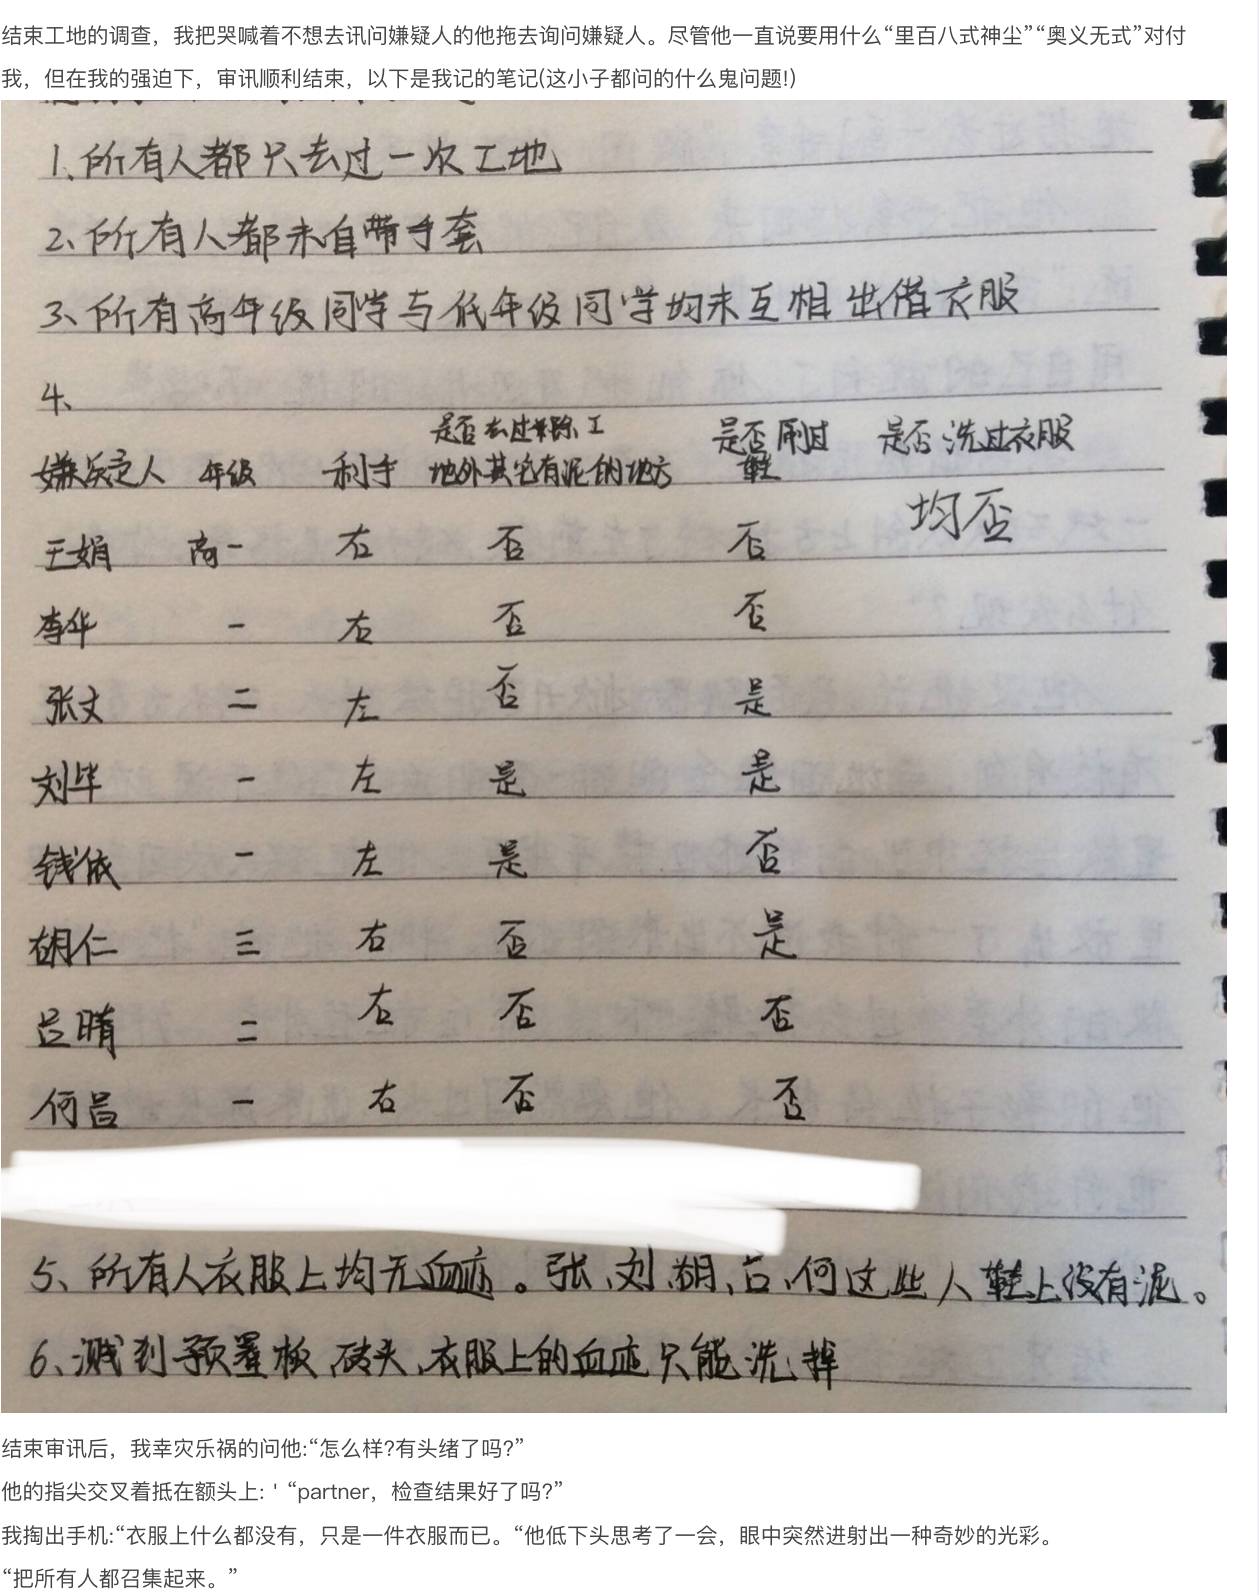 结束工地的调查，我把哭喊着不想去讯问嫌疑人的他拖去询问嫌疑人。尽管他一直说要用什么“里百八式神尘”“奥义无式”对付
我，但在我的强迫下，审讯顺利结束，以下是我记的笔记(这小子都问的什么鬼问题!)
1、所有人都只去过一次工地
2、所有人都未自带手套
3、所有高年级同学与低年级同学均未互相出借衣服
4、
嫌疑人 年级 利手 是否去过除工地外其它有泥的地方 是否刷过鞋 是否洗过衣服
王娟 高一 右 否 否 均否
李华 一 右 否 否
张文 二 左 否 是
刘毕 一 左 是 是
钱依 一 左 是 否
胡仁 三 右 否 是
吕晴 二 右 否 否
何吕 一 右 否 否
5、所有人衣服上均无血迹。张、刘、胡、吕、何这些人鞋上没有泥。
6、溅到预置板、砖头、衣服上的血迹只能洗掉
结束审讯后，我幸灾乐祸的问他:“怎么样?有头绪了吗?”
他的指尖交叉着抵在额头上: ' “partner，检查结果好了吗?”
我掏出手机:“衣服上什么都没有，只是一件衣服而已。“他低下头思考了一会，眼中突然迸射出一种奇妙的光彩。
“把所有人都召集起来。”